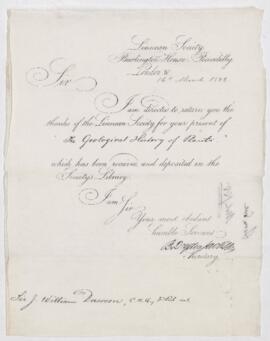 Linnean Society
Burlington House Piccadilly
London W
16th March 1888
Sir
I am directed to return you the
thanks of the Linnean Society for your present of
"The Geological History of Plants"
which has been received and deposited in the
Society's Library
I am Sir
Your most obedient
humble Servant
Secretary
Sir J. William Dawson, C.M.G.